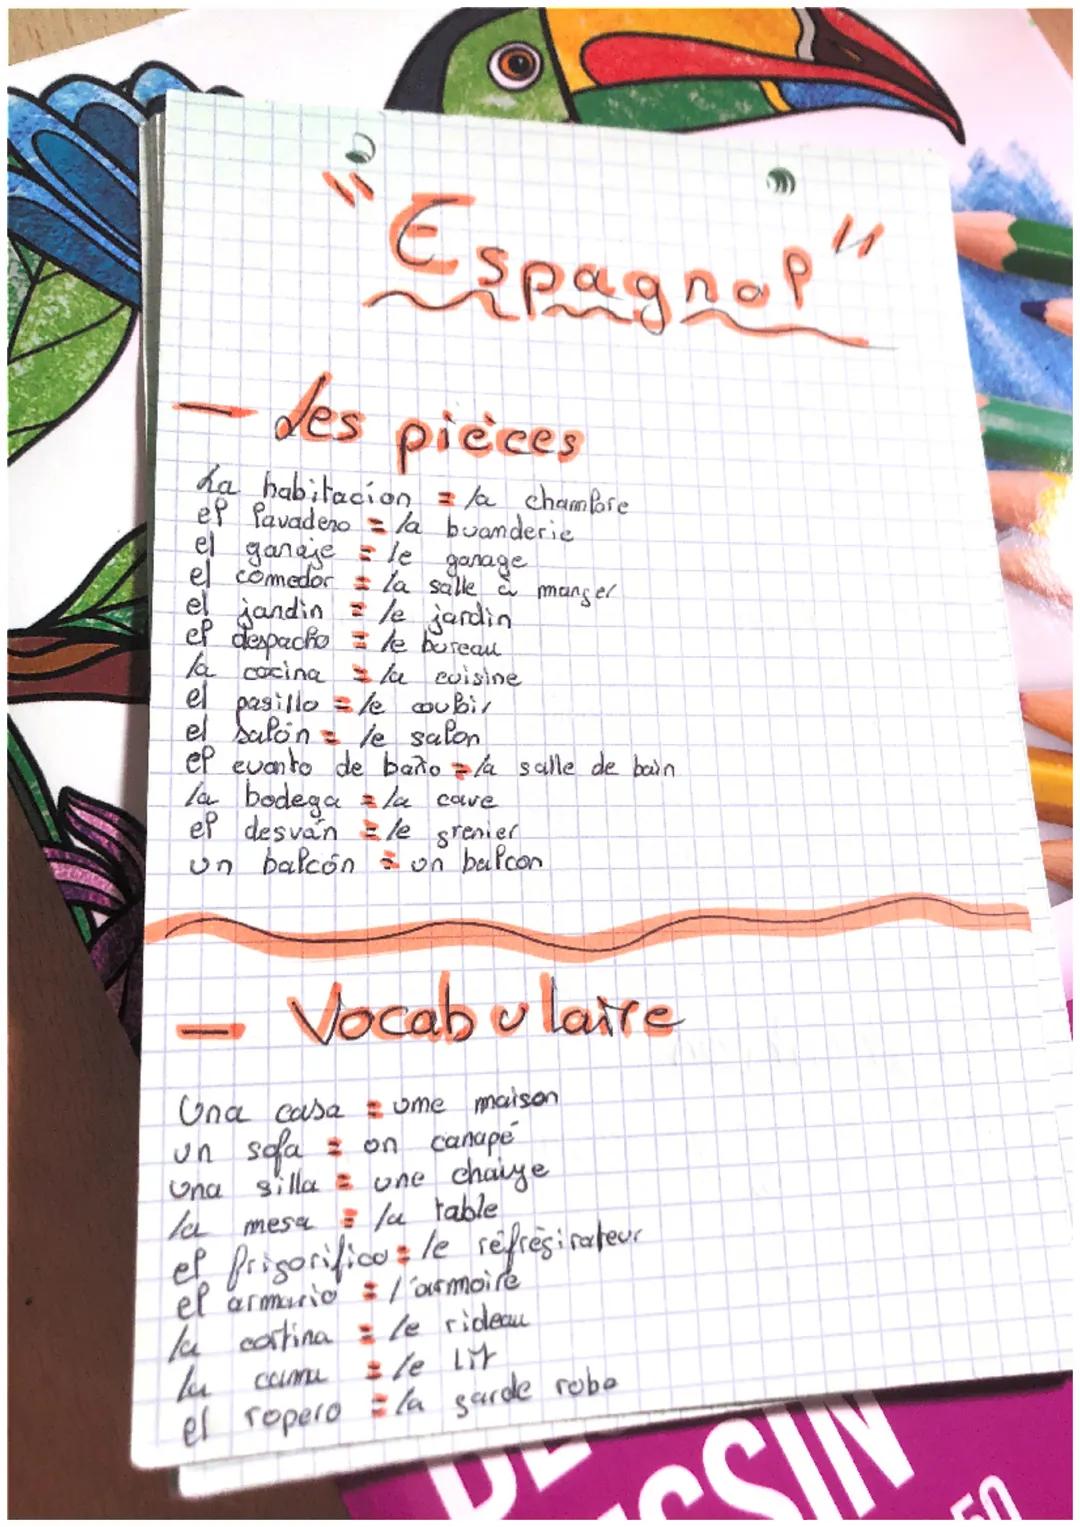 "Espagnol"
— Les pièces
La habitacíon = la chambre
el lavadero = la buanderie
el garaje = le garage
el comedor = la salle à manger
el jardin = le jardin
el despacho = le bureau
la cocina = la cuisine
el pasillo = le couloir
el salón = le salon
el cuarto de baño = la salle de bain
la bodega = la cave
el desván = le grenier
un balcón = un balcon
— Vocabulaire
Una casa = une maison
un sofa = un canapé
una silla = une chaise
la mesa = la table
el frigorifico = le réfrégirateur
el armario = l'armoire
la cortina = le rideau
la cama = le lit
el ropero = la garde robe
DESSIN
50